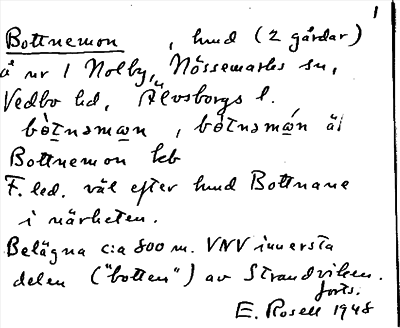 1
Bottnemon , hmd (2 gårdar)
å nr 1 Nolby, Nössemarks sn,
Vedbo hd, Älvsborgs l.
Bottnemon leb
F. led. väl efter hmd Bottnane
i närheten.
Belägna c:a 800 m. VNV innersta
delen ("botten") av Strandviken.
forts.
E. Rosell 1948